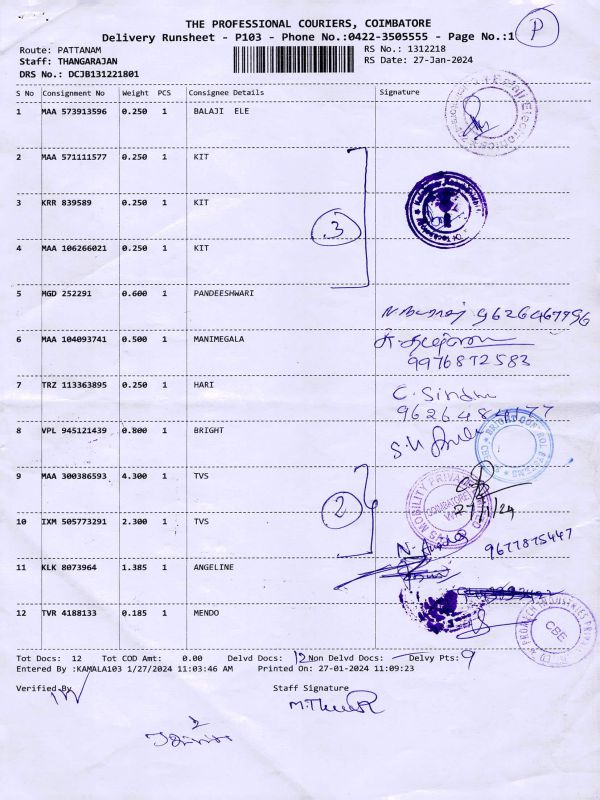 THE PROFESSIONAL COURIERS, COIMBATORE
Delivery Runsheet - P103 - Phone No.:0422-3505555 - Page No.:1 P
Route: PATTANAM RS No.: 1312218
Staff: THANGARAJAN RS Date: 27-Jan-2024
DRS No.: DCJB131221801
S No Consignment No Weight PCS Consignee Details Signature
1 MAA 573913596 0.250 1 BALAJI ELE
2 MAA 571111577 0.250 1 KIT
3 KRR 839589 0.250 1 KIT
3
4 MAA 106266021 0.250 1 KIT
5 MGD 252291 0.600 1 PANDEESHWARI
9626467996
6 MAA 104093741 0.500 1 MANIMEGALA
9976872583
7 TRZ 113363895 0.250 1 HARI
C. Sindhu
9626484177
8 VPL 945121439 0.800 1 BRIGHT
9 MAA 300386593 4.300 1 TVS
2
27/1/24
10 IXM 505773291 2.300 1 TVS
9677875447
11 KLK 8073964 1.385 1 ANGELINE
12 TVR 4188133 0.185 1 MENDO
CBE
Tot Docs: 12 Tot COD Amt: 0.00 Delvd Docs: 12 Non Delvd Docs: — Delvy Pts: 9
Entered By :KAMALA103 1/27/2024 11:03:46 AM Printed On: 27-01-2024 11:09:23
Verified By Staff Signature